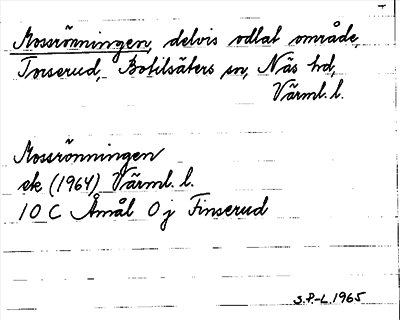 Mossrönningen, delvis odlat område,
Torserud, Botilsäters sn, Näs hd,
Värml. l.
Mossrönningen
ek (1964) Värml. l.
10 C Åmål 0 j Finserud
S.P-L. 1965